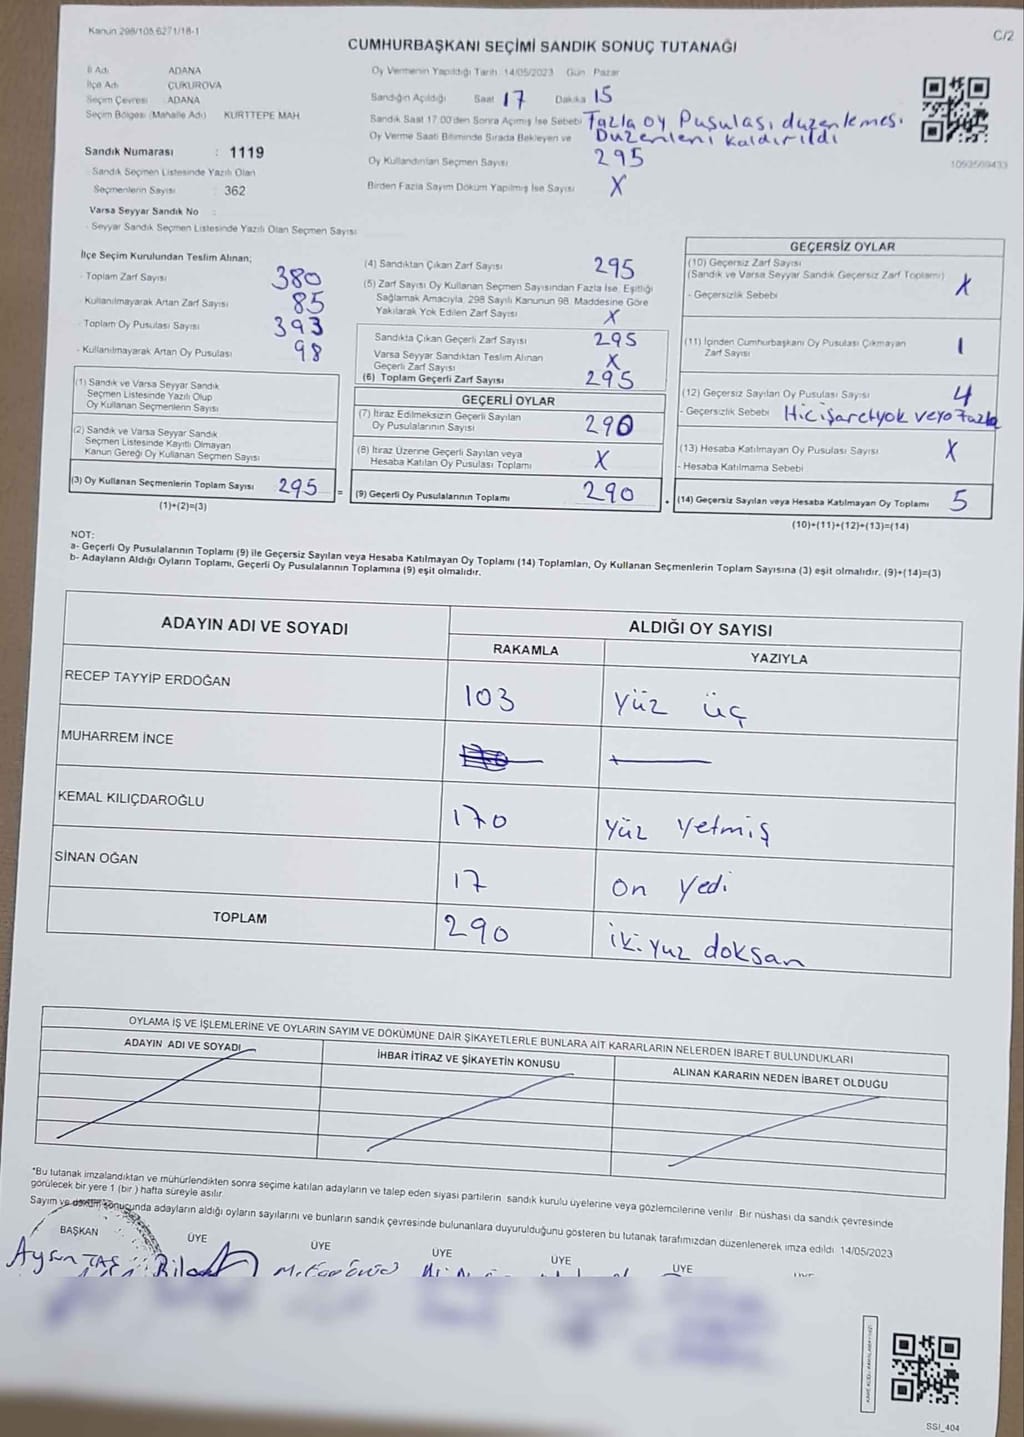 Kanun 298/105 6271/18-1
C/2
CUMHURBAŞKANI SEÇİMİ SANDIK SONUÇ TUTANAĞI
İl Adı ADANA
İlçe Adı ÇUKUROVA
Seçim Çevresi ADANA
Seçim Bölgesi (Mahalle Adı) KURTTEPE MAH.
Sandık Numarası : 1119
Sandık Seçmen Listesinde Yazılı Olan
Seçmenlerin Sayısı : 362
Varsa Seyyar Sandık No :
- Seyyar Sandık Seçmen Listesinde Yazılı Olan Seçmen Sayısı
Oy Vermenin Yapıldığı Tarih: 14/05/2023 Gün: Pazar
Sandığın Açıldığı Saat 17 Dakika 15
Sandık Saat 17.00'den Sonra Açımış İse Sebebi Fazla oy Pusulası düzenlemesi
Oy Verme Saati Bitiminde Sırada Bekleyen ve Düzenleni kaldırıldı
Oy Kullandırılan Seçmen Sayısı 295
Birden Fazla Sayım Döküm Yapılmış İse Sayısı X
1093569433
İlçe Seçim Kurulundan Teslim Alınan;
- Toplam Zarf Sayısı 380
- Kullanılmayarak Artan Zarf Sayısı 85
- Toplam Oy Pusulası Sayısı 393
- Kullanılmayarak Artan Oy Pusulası 98
(1) Sandık ve Varsa Seyyar Sandık
Seçmen Listesinde Yazılı Olup
Oy Kullanan Seçmenlerin Sayısı
(2) Sandık ve Varsa Seyyar Sandık
Seçmen Listesinde Kayıtlı Olmayan
Kanun Gereği Oy Kullanan Seçmen Sayısı
(3) Oy Kullanan Seçmenlerin Toplam Sayısı 295 =
(1)+(2)=(3)
(4) Sandıktan Çıkan Zarf Sayısı 295
(5) Zarf Sayısı Oy Kullanan Seçmen Sayısından Fazla İse, Eşitliği
Sağlamak Amacıyla, 298 Sayılı Kanunun 98. Maddesine Göre
Yakılarak Yok Edilen Zarf Sayısı X
Sandıkta Çıkan Geçerli Zarf Sayısı 295
Varsa Seyyar Sandıktan Teslim Alınan
Geçerli Zarf Sayısı X
(6) Toplam Geçerli Zarf Sayısı 295
GEÇERLİ OYLAR
(7) İtiraz Edilmeksizin Geçerli Sayılan
Oy Pusulalarının Sayısı 290
(8) İtiraz Üzerine Geçerli Sayılan veya
Hesaba Katılan Oy Pusulası Toplamı X
(9) Geçerli Oy Pusulalarının Toplamı 290
GEÇERSİZ OYLAR
(10) Geçersiz Zarf Sayısı
(Sandık ve Varsa Seyyar Sandık Geçersiz Zarf Toplamı) X
- Geçersizlik Sebebi
(11) İçinden Cumhurbaşkanı Oy Pusulası Çıkmayan
Zarf Sayısı 1
(12) Geçersiz Sayılan Oy Pusulası Sayısı 4
- Geçersizlik Sebebi Hiç işaret yok veya fazla
(13) Hesaba Katılmayan Oy Pusulası Sayısı X
- Hesaba Katılmama Sebebi
(14) Geçersiz Sayılan veya Hesaba Katılmayan Oy Toplamı 5
(10)+(11)+(12)+(13)=(14)
NOT:
a- Geçerli Oy Pusulalarının Toplamı (9) ile Geçersiz Sayılan veya Hesaba Katılmayan Oy Toplamı (14) Toplamları, Oy Kullanan Seçmenlerin Toplam Sayısına (3) eşit olmalıdır. (9)+(14)=(3)
b- Adayların Aldığı Oyların Toplamı, Geçerli Oy Pusulalarının Toplamına (9) eşit olmalıdır.
ADAYIN ADI VE SOYADI
ALDIĞI OY SAYISI
RAKAMLA YAZIYLA
RECEP TAYYİP ERDOĞAN 103 Yüz üç
MUHARREM İNCE
KEMAL KILIÇDAROĞLU 170 Yüz Yetmiş
SİNAN OĞAN 17 on yedi
TOPLAM 290 ikiyuz doksan
OYLAMA İŞ VE İŞLEMLERİNE VE OYLARIN SAYIM VE DÖKÜMÜNE DAİR ŞİKAYETLERLE BUNLARA AİT KARARLARIN NELERDEN İBARET BULUNDUKLARI
ADAYIN ADI VE SOYADI İHBAR İTİRAZ VE ŞİKAYETİN KONUSU ALINAN KARARIN NEDEN İBARET OLDUĞU
*Bu tutanak imzalandıktan ve mühürlendikten sonra seçime katılan adayların ve talep eden siyasi partilerin sandık kurulu üyelerine veya gözlemcilerine verilir. Bir nüshası da sandık çevresinde
görülecek bir yere 1 (bir) hafta süreyle asılır.
Sayım ve döküm sonucunda adayların aldığı oyların sayılarını ve bunların sandık çevresinde bulunanlara duyurulduğunu gösteren bu tutanak tarafımızdan düzenlenerek imza edildi. 14/05/2023
BAŞKAN ÜYE ÜYE ÜYE ÜYE ÜYE
SSI_404